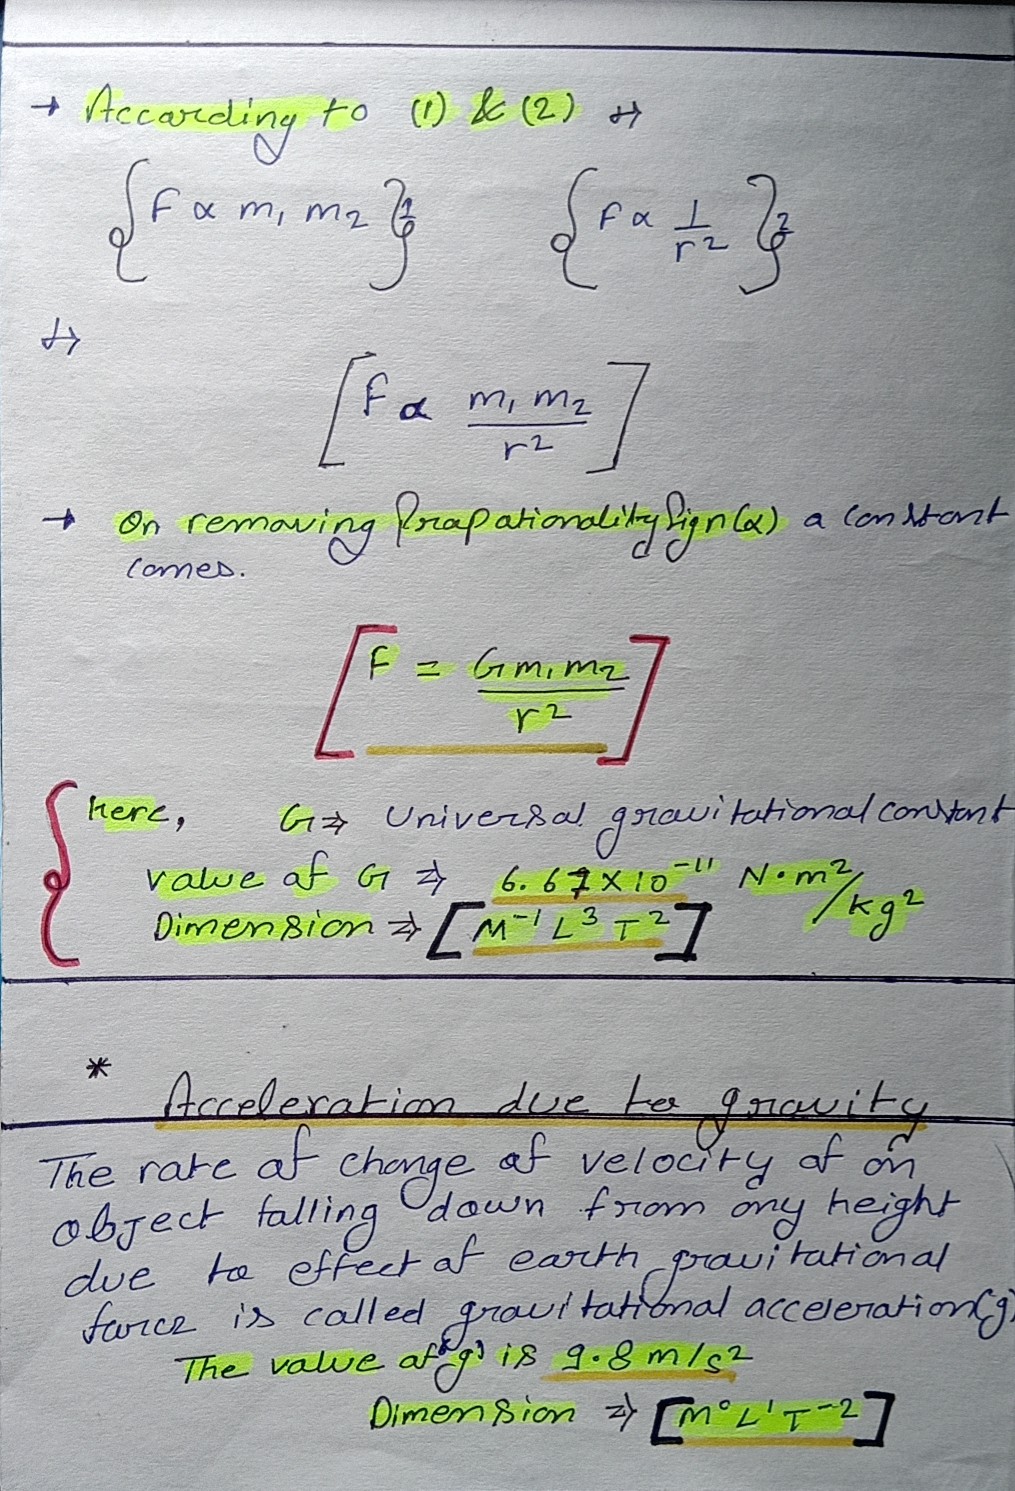 → According to (1) & (2) ↦
{F ∝ m₁ m₂}1 {F ∝ 1/r²}2
↦
[F ∝ m₁ m₂/r²]
→ On removing Propationality Sign(∝) a constant
comes.
[F = Gm₁m₂/r²]
Here, G ⇒ Universal gravitational constant
value of G ⇒ 6.67×10⁻¹¹ N·m²/kg²
Dimension ⇒ [M⁻¹ L³ T²]
*
Acceleration due to gravity
The rate of change of velocity of an
object falling down from any height
due to effect of earth gravitational
force is called gravitational acceleration(g)
The value of 'g' is 9.8 m/s²
Dimension ⇒ [M⁰L¹T⁻²]